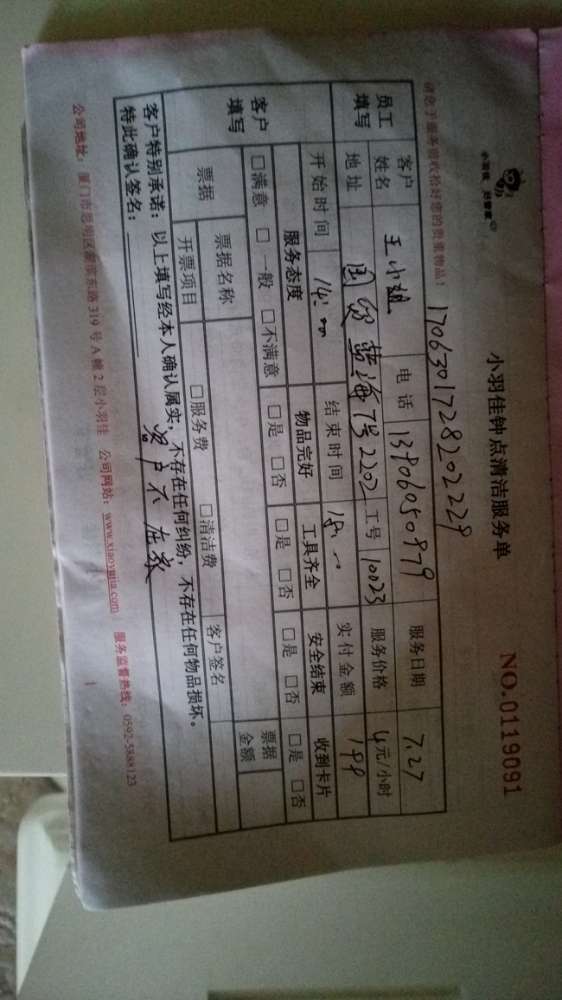 小羽佳 好管家
小羽佳钟点清洁服务单
NO.0119091
请您于服务前收拾好您的贵重物品!
170630172820229
员工填写
客户姓名 王小姐 电话 13906050979 服务日期 7.27
地址 国贸蓝海7号2202 工号 10023 服务价格 4元/小时
开始时间 14: 结束时间 18: 实付金额 199
客户填写
服务态度 物品完好 工具齐全 安全结束 收到卡片
□满意 □一般 □不满意 □是 □否 □是 □否 □是 □否 □是 □否
票据 票据名称 票据金额
开票项目 □服务费 □清洁费 客户签名
客户特别承诺:以上填写经本人确认属实,不存在任何纠纷,不存在任何物品损坏。
特此确认签名: 客户不在家
公司地址:厦门市思明区莲滨东路319号A幢2层小羽佳 公司网站:www.xiaoyujia.com 服务监督热线:0592-5888123